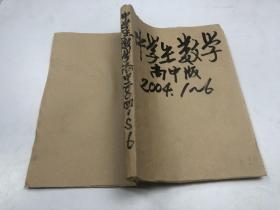 中学生数学
高中版
2004.1~6
中学生数学高中2004.1-5 6